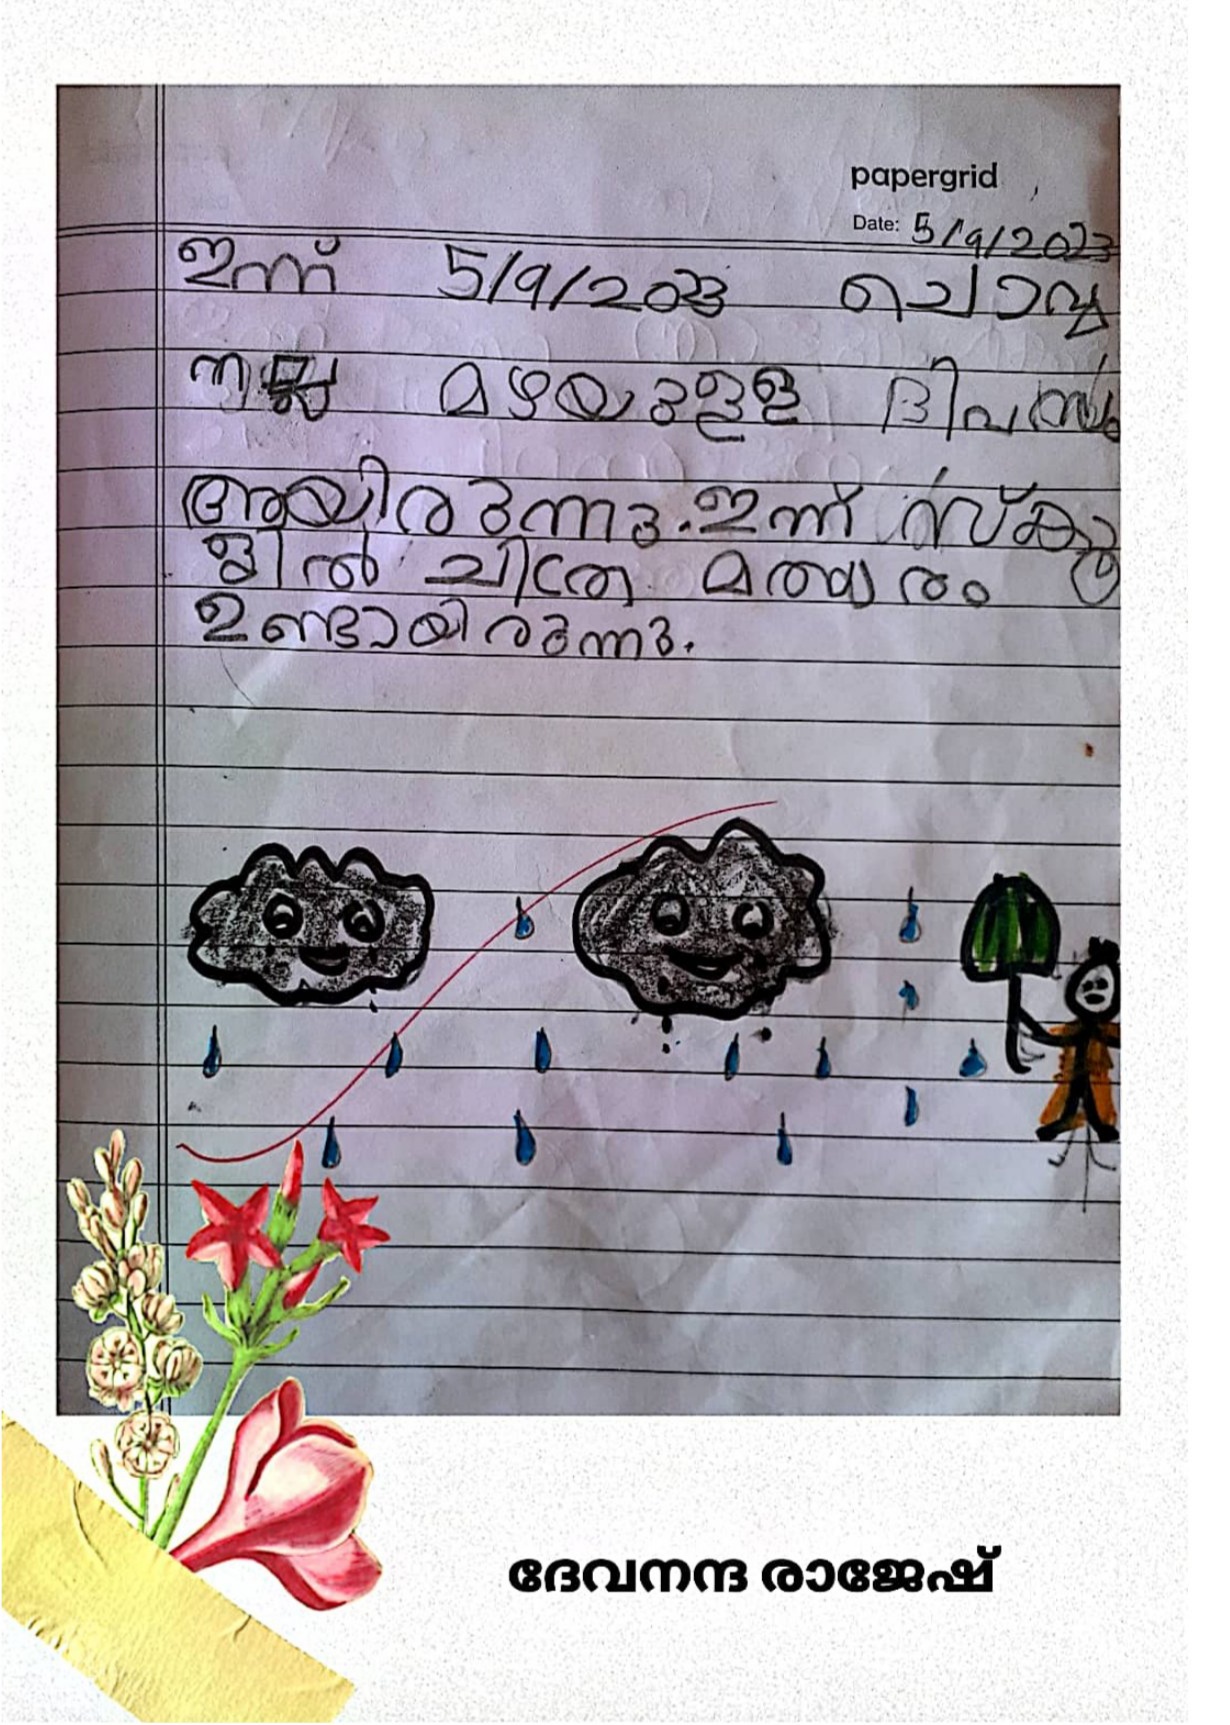 papergrid
Date: 5/9/2023
ഇന്ന് 5/9/2023 ചൊവ്വ
നല്ല മഴയുള്ള ദിവസം
ആയിരുന്നു. ഇന്ന് സ്കൂ
ളിൽ ചിത്ര മത്സരം
ഉണ്ടായിരുന്നു.
ദേവനന്ദ രാജേഷ്